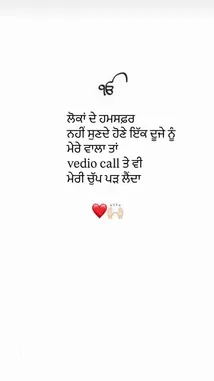 ੴ
ਲੋਕਾਂ ਦੇ ਹਮਸਫ਼ਰ
ਨਹੀਂ ਸੁਣਦੇ ਹੋਣੇ ਇੱਕ ਦੂਜੇ ਨੂੰ
ਮੇਰੇ ਵਾਲਾ ਤਾਂ
vedio call ਤੇ ਵੀ
ਮੇਰੀ ਚੁੱਪ ਪੜ ਲੈਂਦਾ
❤️🙌🏻